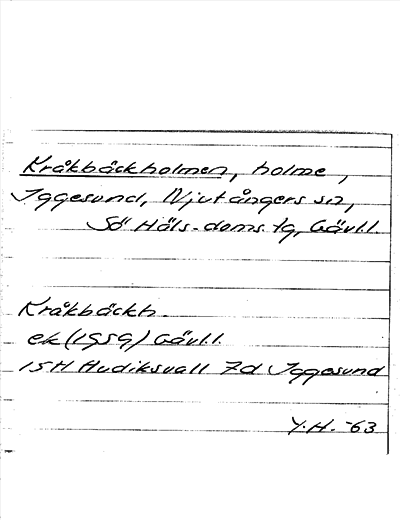 Kråkbäckholmen, holme,
Iggesund, Njutångers sn,
Sö Häls. doms. tg, Gävl.l.
Kråkbäckh.
ek (1959) Gävl.l.
15H Hudiksvall 7d Iggesund
Y.H. -63